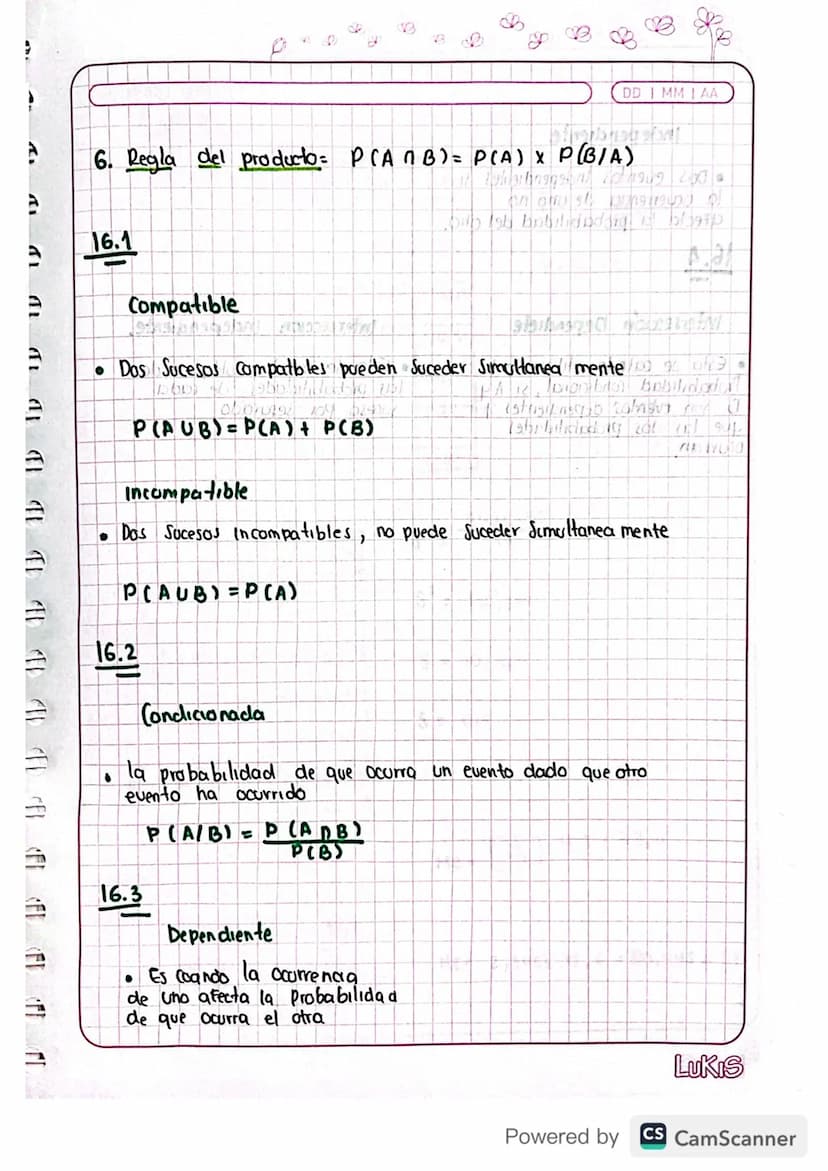 DD | MM | AA
6. Regla del producto= P(A ∩ B)= P(A) x P(B/A)
16.1
Compatible
• Dos Sucesos Compatbles pueden Suceder Simultanea mente
P(A U B) = P(A) + P(B)
Incompatible
• Dos Sucesos Incompatibles, no puede Suceder Simultanea mente
P(A U B) = P(A)
16.2
Condicionada
• la probabilidad de que ocurra un evento dado que otro
evento ha ocurrido
P(A/B) = P(A ∩ B)
P(B)
16.3
Dependiente
• Es Cuando la Ocurrencia
de uno afecta la Probabilidad
de que ocurra el otra
LUKIS
Powered by CS CamScanner